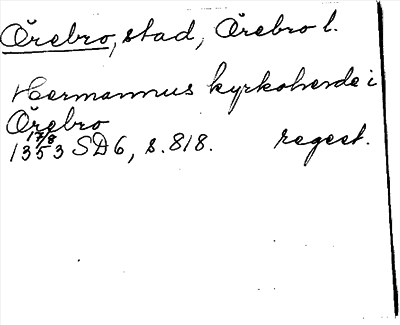 Örebro, stad, Örebro l.
Hermannus kyrkoherde i
Örebro
17/8
1353 SD6, s. 818. regest.